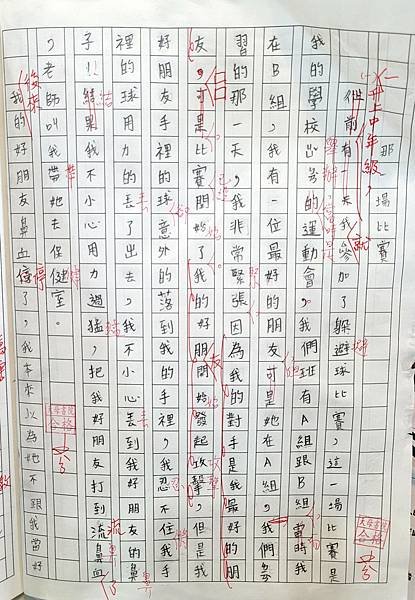 那一場比賽
升上中年級，
有一天我參加了躲避球比賽，這一場比賽是
我的學校的運動會。我們班有A組跟B組當時我
在B組，一位最好的朋友可是她在A組，我們
習的那一天，我非常緊張因為我的對手是我最好的朋
友，可是比賽開始了我的好朋開始發起攻擊，但是我
好朋友手裡的球意外的落到我的手裡，我忍不住我手
裡的球用力的丟了出去，我不小心丟到我好朋友的鼻
子!!結果我不小心用力過猛，把我好朋友打到流鼻血
，老師叫我帶她去保健室。
我的好朋友鼻血停了，我本來以為她不跟我當好
合格
合格